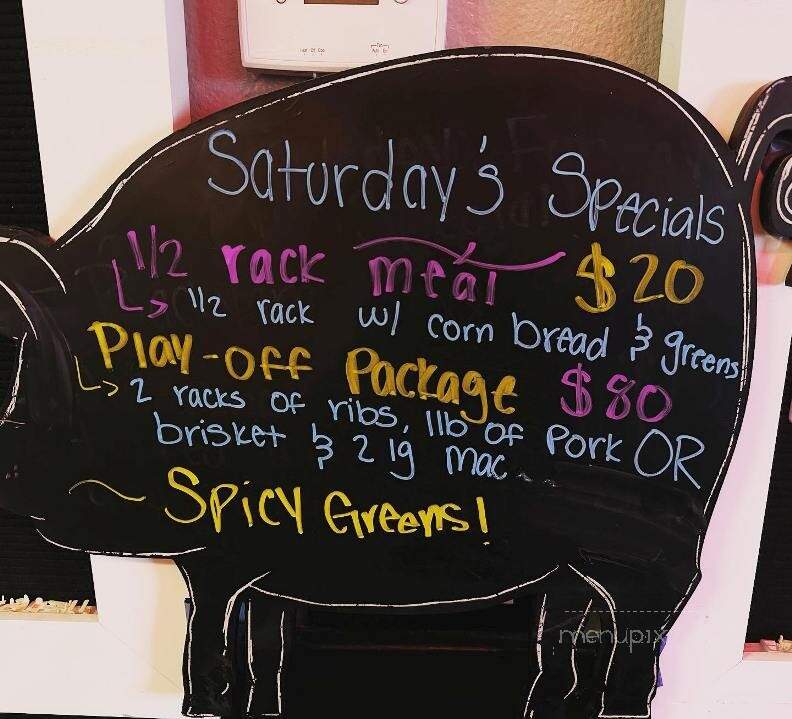 Saturday's Specials
1/2 rack meal $20
1/2 rack w/ corn bread & greens
Play-off Package $80
2 racks of ribs, 1lb of Pork OR
brisket & 2 lg mac
~ Spicy Greens!
menupix